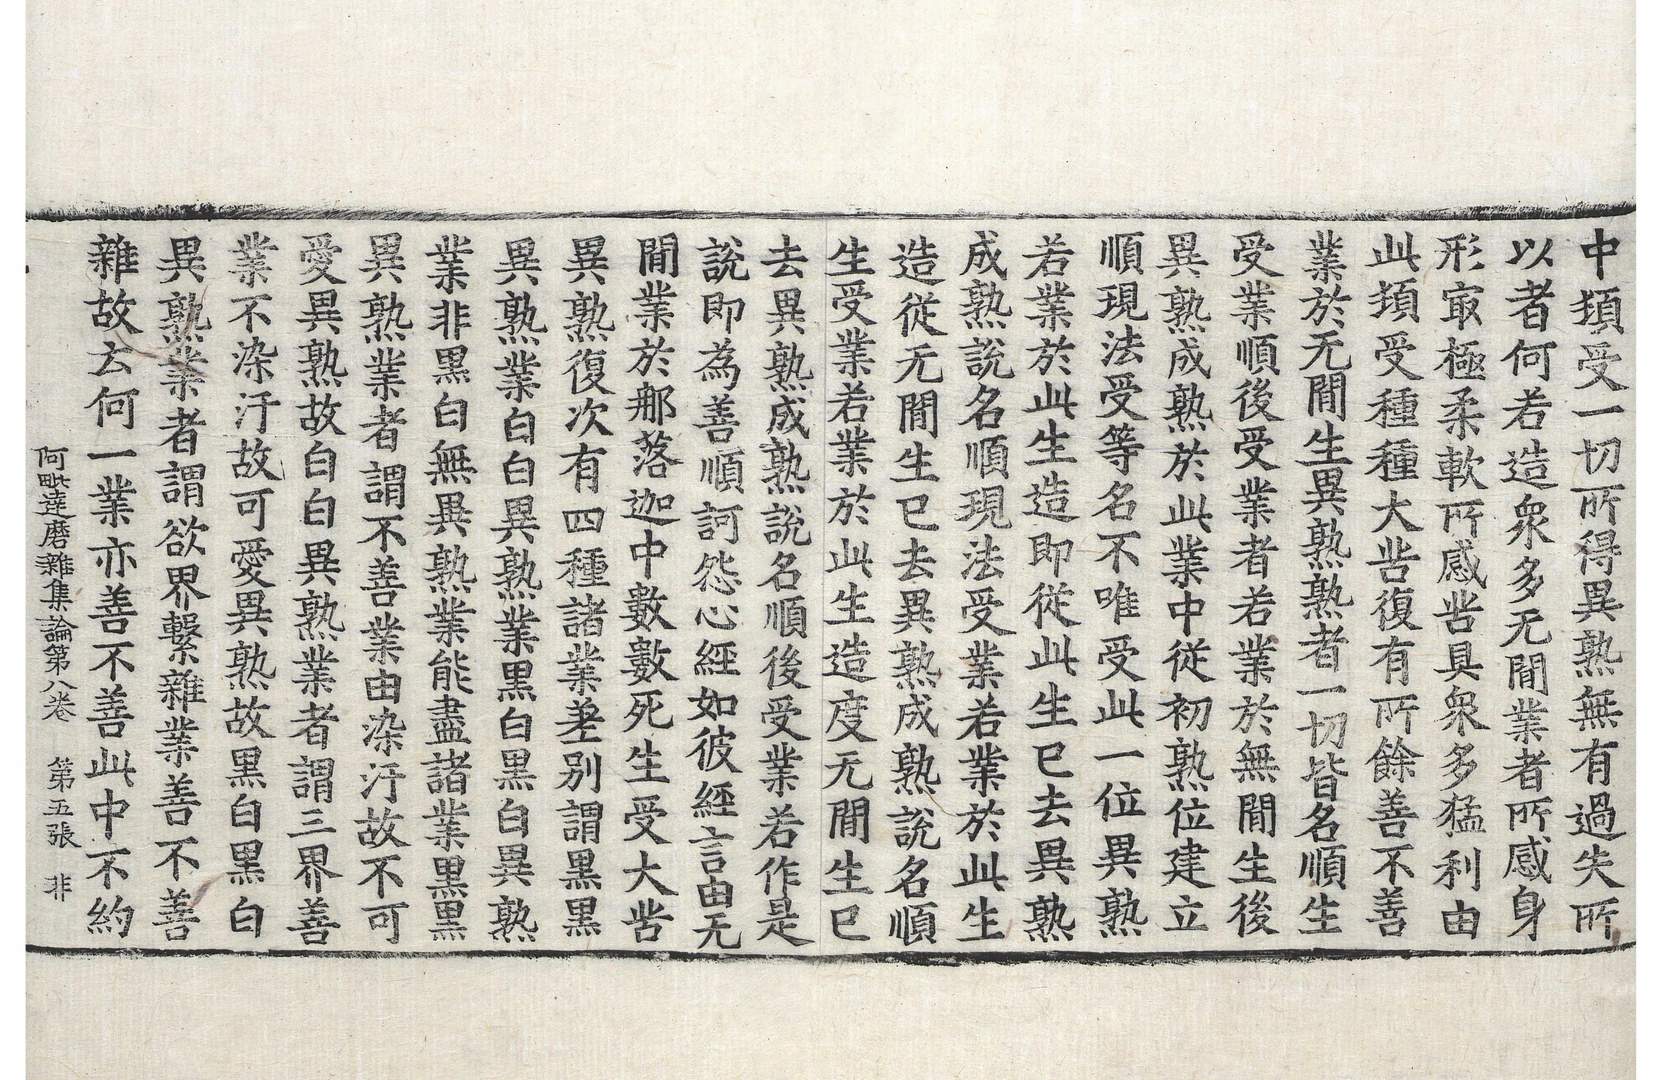 中頓受一切所得異熟無有過失所
以者何若造衆多无閒業者所感身
形㝡極柔軟所感苦具衆多猛利由
此頓受種種大苦復有所餘善不善
業於无閒生異熟熟者一切皆名順生
受業順後受業者若業於無閒生後
異熟成熟於此業中從初熟位建立
順現法受等名不唯受此一位異熟
若業於此生造即從此生已去異熟
成熟說名順現法受業若業於此生
造從无閒生已去異熟成熟說名順
生受業若業於此生造度无閒生已
去異熟成熟說名順後受業若作是
說即為善順訶怨心經如彼經言由无
閒業於郍落迦中數數死生受大苦
異熟復次有四種諸業差別謂黑黑
異熟業白白異熟業黑白黑白異熟
業非黑白無異熟業能盡諸業黑黑
異熟業者謂不善業由染汙故不可
愛異熟故白白異熟業者謂三界善
業不染汙故可愛異熟故黑白黑白
異熟業者謂欲界繫雜業善不善
雜故云何一業亦善不善此中不約
阿毗達磨雜集論第八卷 第五張 非